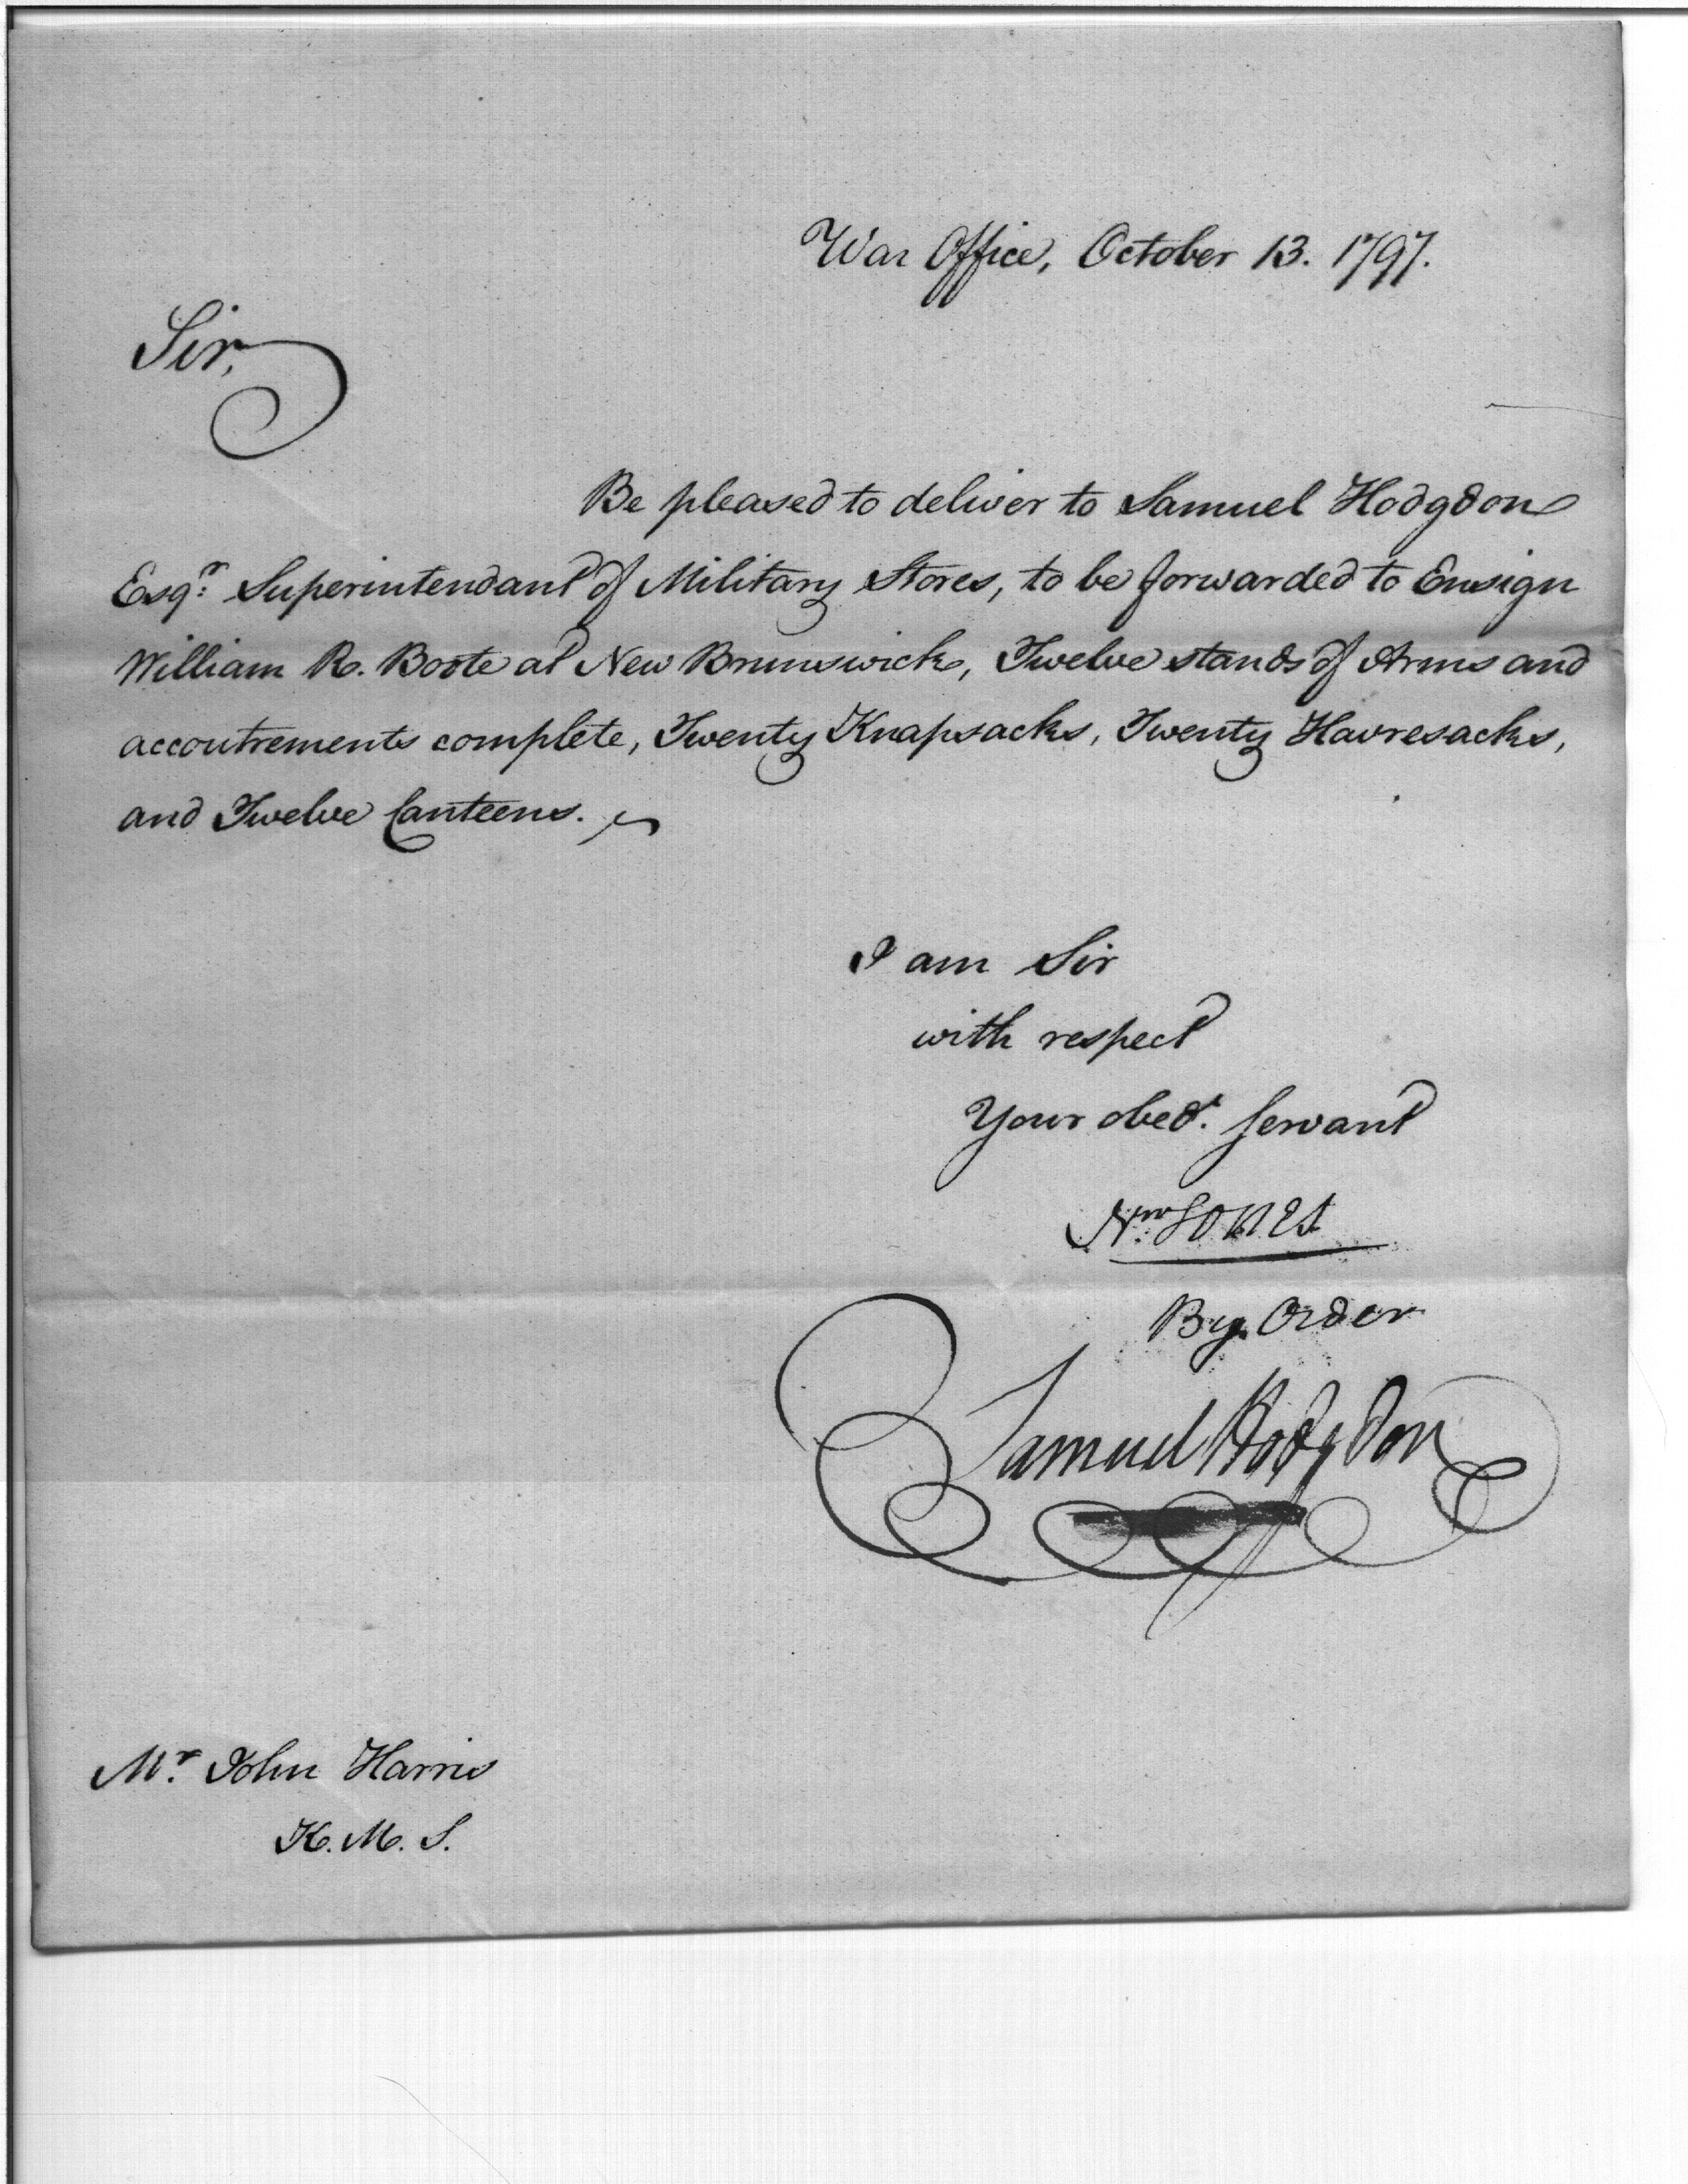 War Office, October 13. 1797.
Sir,
Be pleased to deliver to Samuel Hodgdon
Esqr. Superintendant of Military Stores, to be forwarded to Ensign
William R. Boote at New Brunswick, Twelve stands of Arms and
accoutrements complete, Twenty Knapsacks, Twenty Havresacks,
and Twelve Canteens.
I am Sir
with respect
Your obedt. Servant
Wm Jones
By Order
Samuel Hodgdon
Mr. John Harris
K. M. S.